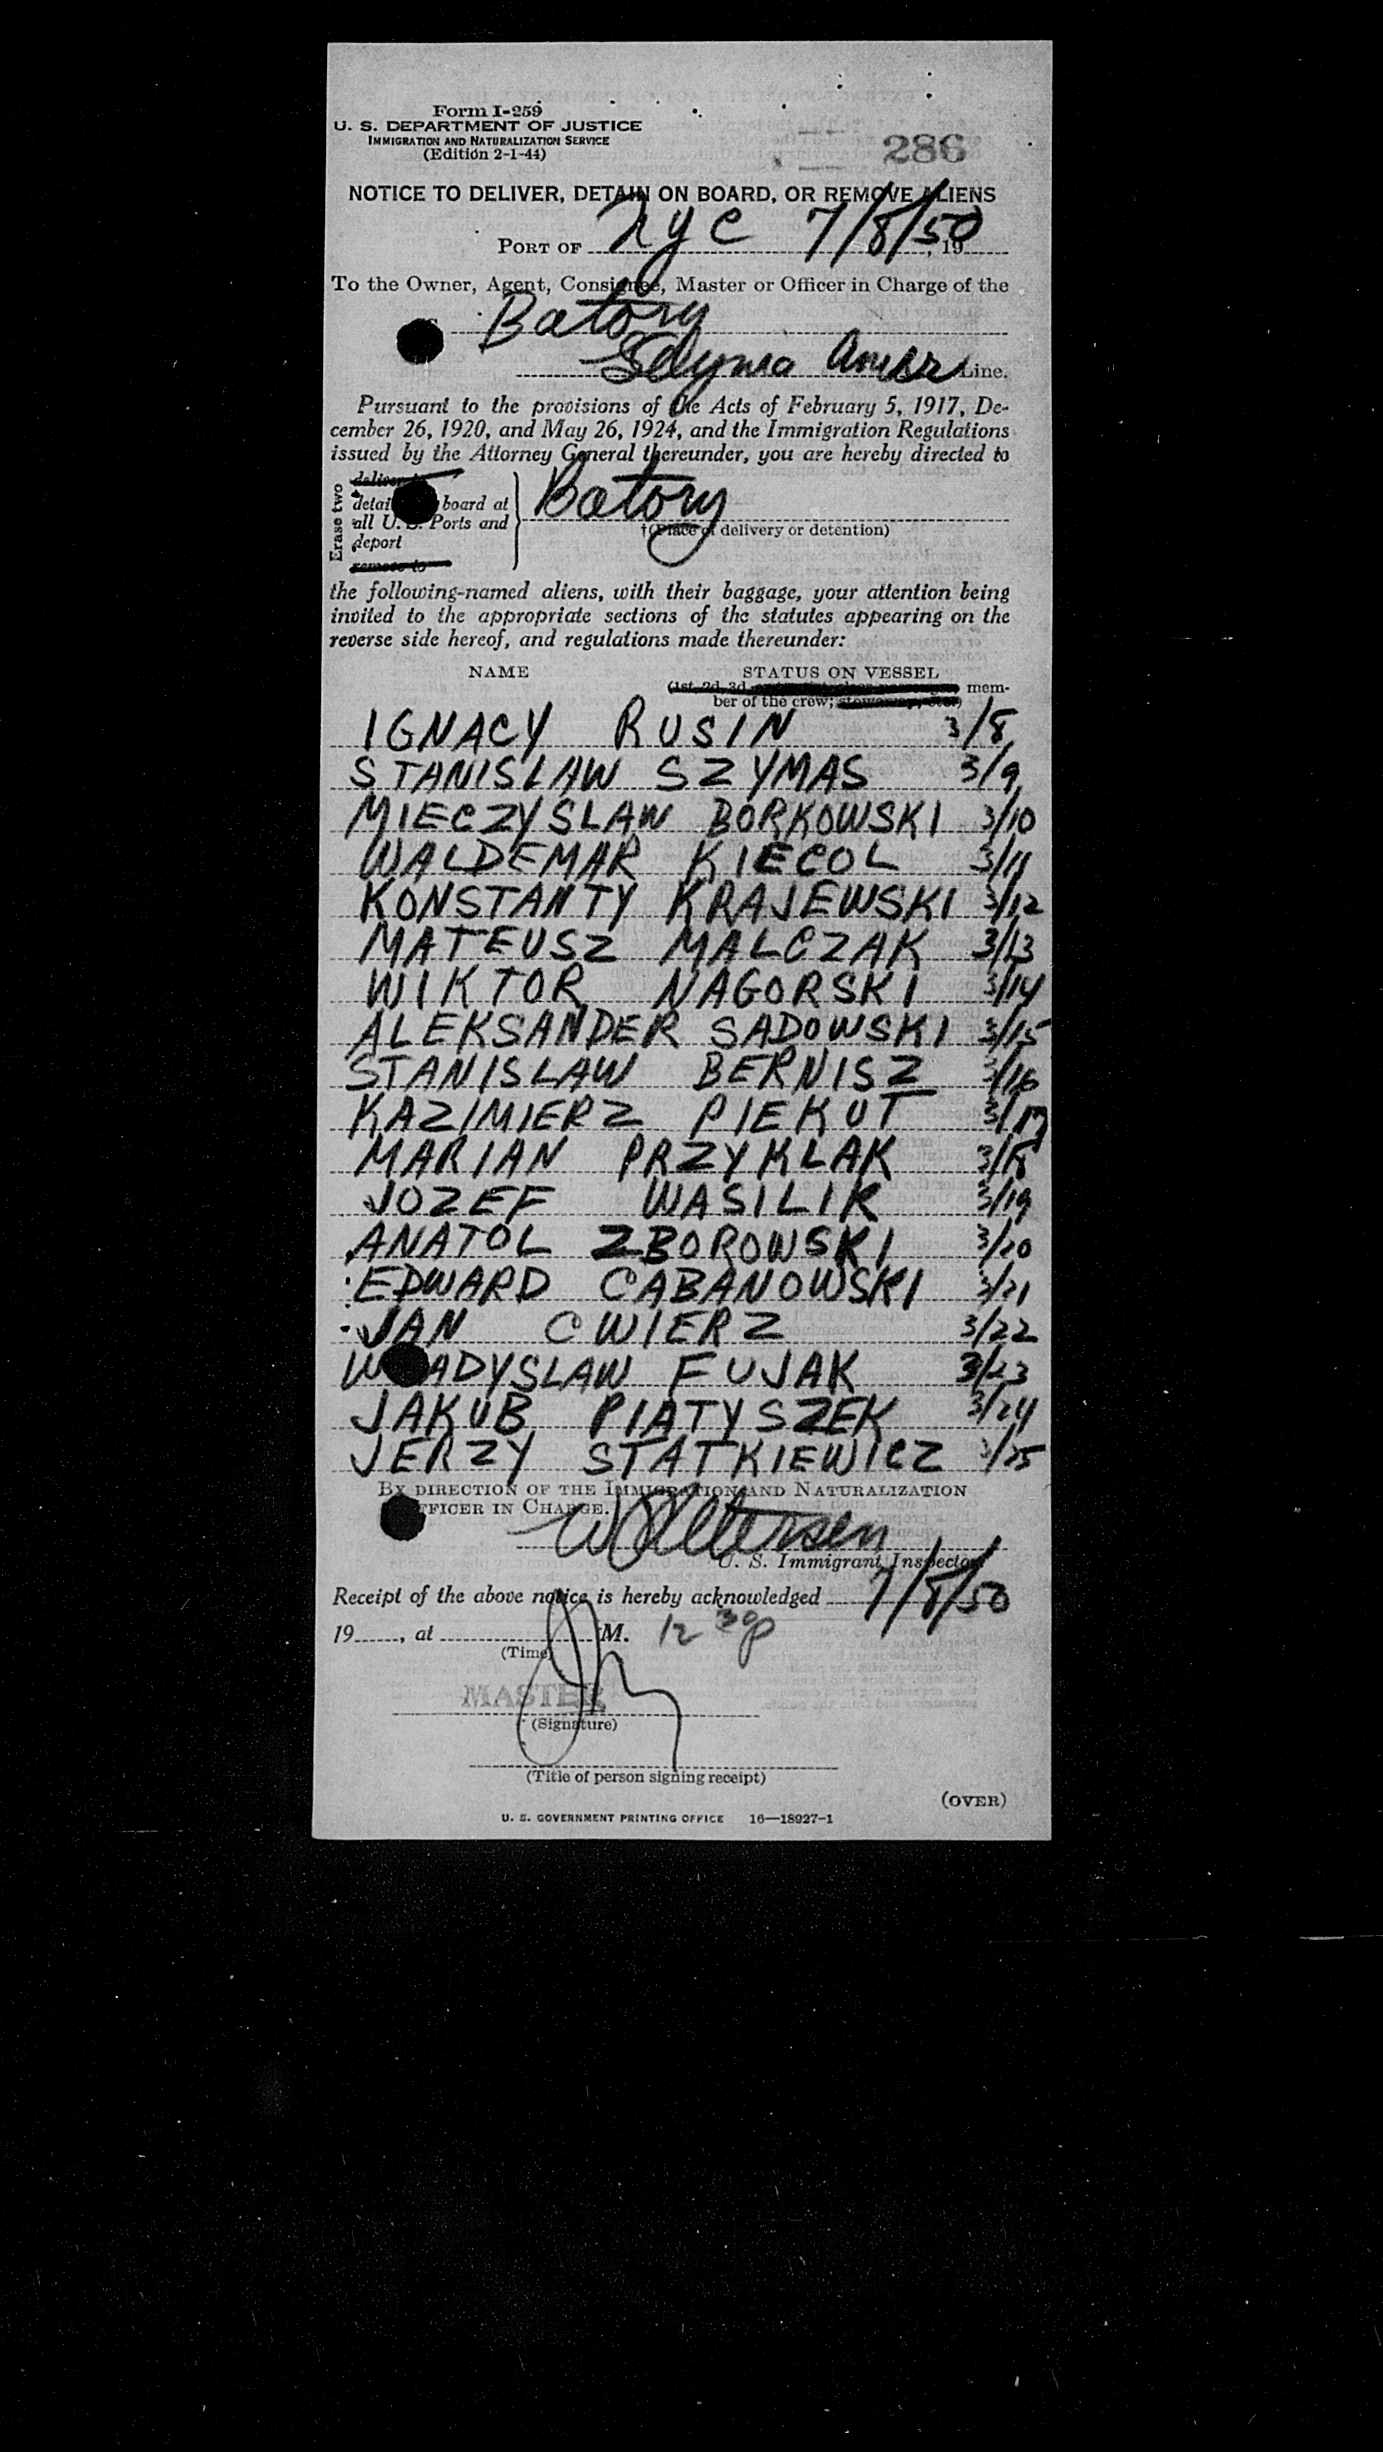 Form I-259
U. S. DEPARTMENT OF JUSTICE
IMMIGRATION AND NATURALIZATION SERVICE
(Edition 2-1-44)
286
NOTICE TO DELIVER, DETAIN ON BOARD, OR REMOVE ALIENS
PORT OF NYC 7/8/50, 19
To the Owner, Agent, Consignee, Master or Officer in Charge of the
Batory
Gdynia Amer Line.
Pursuant to the provisions of the Acts of February 5, 1917, De-
cember 26, 1920, and May 26, 1924, and the Immigration Regulations
issued by the Attorney General thereunder, you are hereby directed to
Erase two
deliver
detai board at
all U. S. Ports and
deport
remove to
Batory
†(Place of delivery or detention)
the following-named aliens, with their baggage, your attention being
invited to the appropriate sections of the statutes appearing on the
reverse side hereof, and regulations made thereunder:
NAME STATUS ON VESSEL
(1st, 2d, 3d mem-
ber of the crew;
IGNACY RUSIN 3/8
STANISLAW SZYMAS 3/9
MIECZYSLAW BORKOWSKI 3/10
WALDEMAR KIECOL 3/11
KONSTANTY KRAJEWSKI 3/12
MATEUSZ MALCZAK 3/13
WIKTOR NAGORSKI 3/14
ALEKSANDER SADOWSKI 3/15
STANISLAW BERNISZ 3/16
KAZIMIERZ PIEKUT 3/17
MARIAN PRZYKLAK 3/18
JOZEF WASILIK 3/19
ANATOL ZBOROWSKI 3/20
EDWARD CABANOWSKI 3/21
JAN CWIERZ 3/22
W ADYSLAW FUJAK 3/23
JAKUB PIATYSZEK 3/24
JERZY STATKIEWICZ 3/25
BY DIRECTION OF THE IMMIGRATION AND NATURALIZATION
FFICER IN CHARGE.
U. S. Immigrant Inspector
Receipt of the above notice is hereby acknowledged 7/8/50
19, at M. 12 30 p
(Time)
MASTER
(Signature)
(Title of person signing receipt)
(OVER)
U. S. GOVERNMENT PRINTING OFFICE 16—18927-1